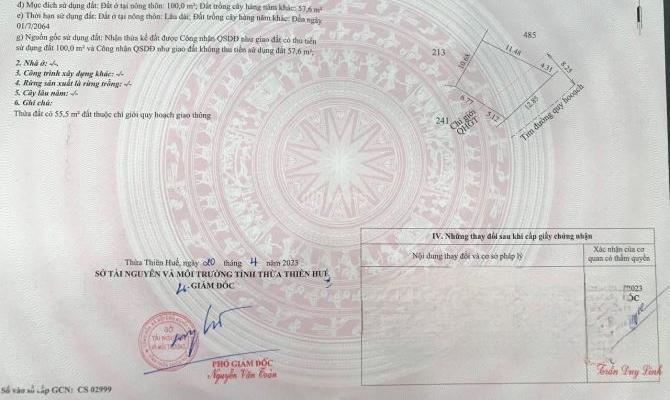 d) Mục đích sử dụng đất: Đất ở tại nông thôn: 100,0 m²; Đất trồng cây hàng năm khác: 57,6 m²
e) Thời hạn sử dụng đất: Đất ở tại nông thôn: Lâu dài; Đất trồng cây hàng năm khác: Đến ngày
01/7/2064
g) Nguồn gốc sử dụng: Nhận thừa kế đất được Công nhận QSDĐ như giao đất có thu tiền
sử dụng đất 100,0 m² và Công nhận QSDĐ như giao đất không thu tiền sử dụng đất 57,6 m²;
2. Nhà ở: -/-.
3. Công trình xây dựng khác: -/-
4. Rừng sản xuất là rừng trồng: -/-
5. Cây lâu năm: -/-
6. Ghi chú:
Thửa đất có 55,5 m² đất thuộc chỉ giới quy hoạch giao thông
485
213
241
11.48
10.68
4.31
8.25
6.77
5.12
12.85
Chỉ giới
QHGT
Tim đường quy hoạch
Thừa Thiên Huế, ngày 20 tháng 4 năm 2023
SỞ TÀI NGUYÊN VÀ MÔI TRƯỜNG TỈNH THỪA THIÊN HUẾ
GIÁM ĐỐC
SỞ
TÀI NGUYÊN
VÀ MÔI TRƯỜNG
PHÓ GIÁM ĐỐC
Nguyễn Văn Toàn
Số vào sổ cấp GCN: CS 02999
IV. Những thay đổi sau khi cấp giấy chứng nhận
Nội dung thay đổi và cơ sở pháp lý
Xác nhận của cơ
quan có thẩm quyền
2023
ỐC
Trần Duy Linh